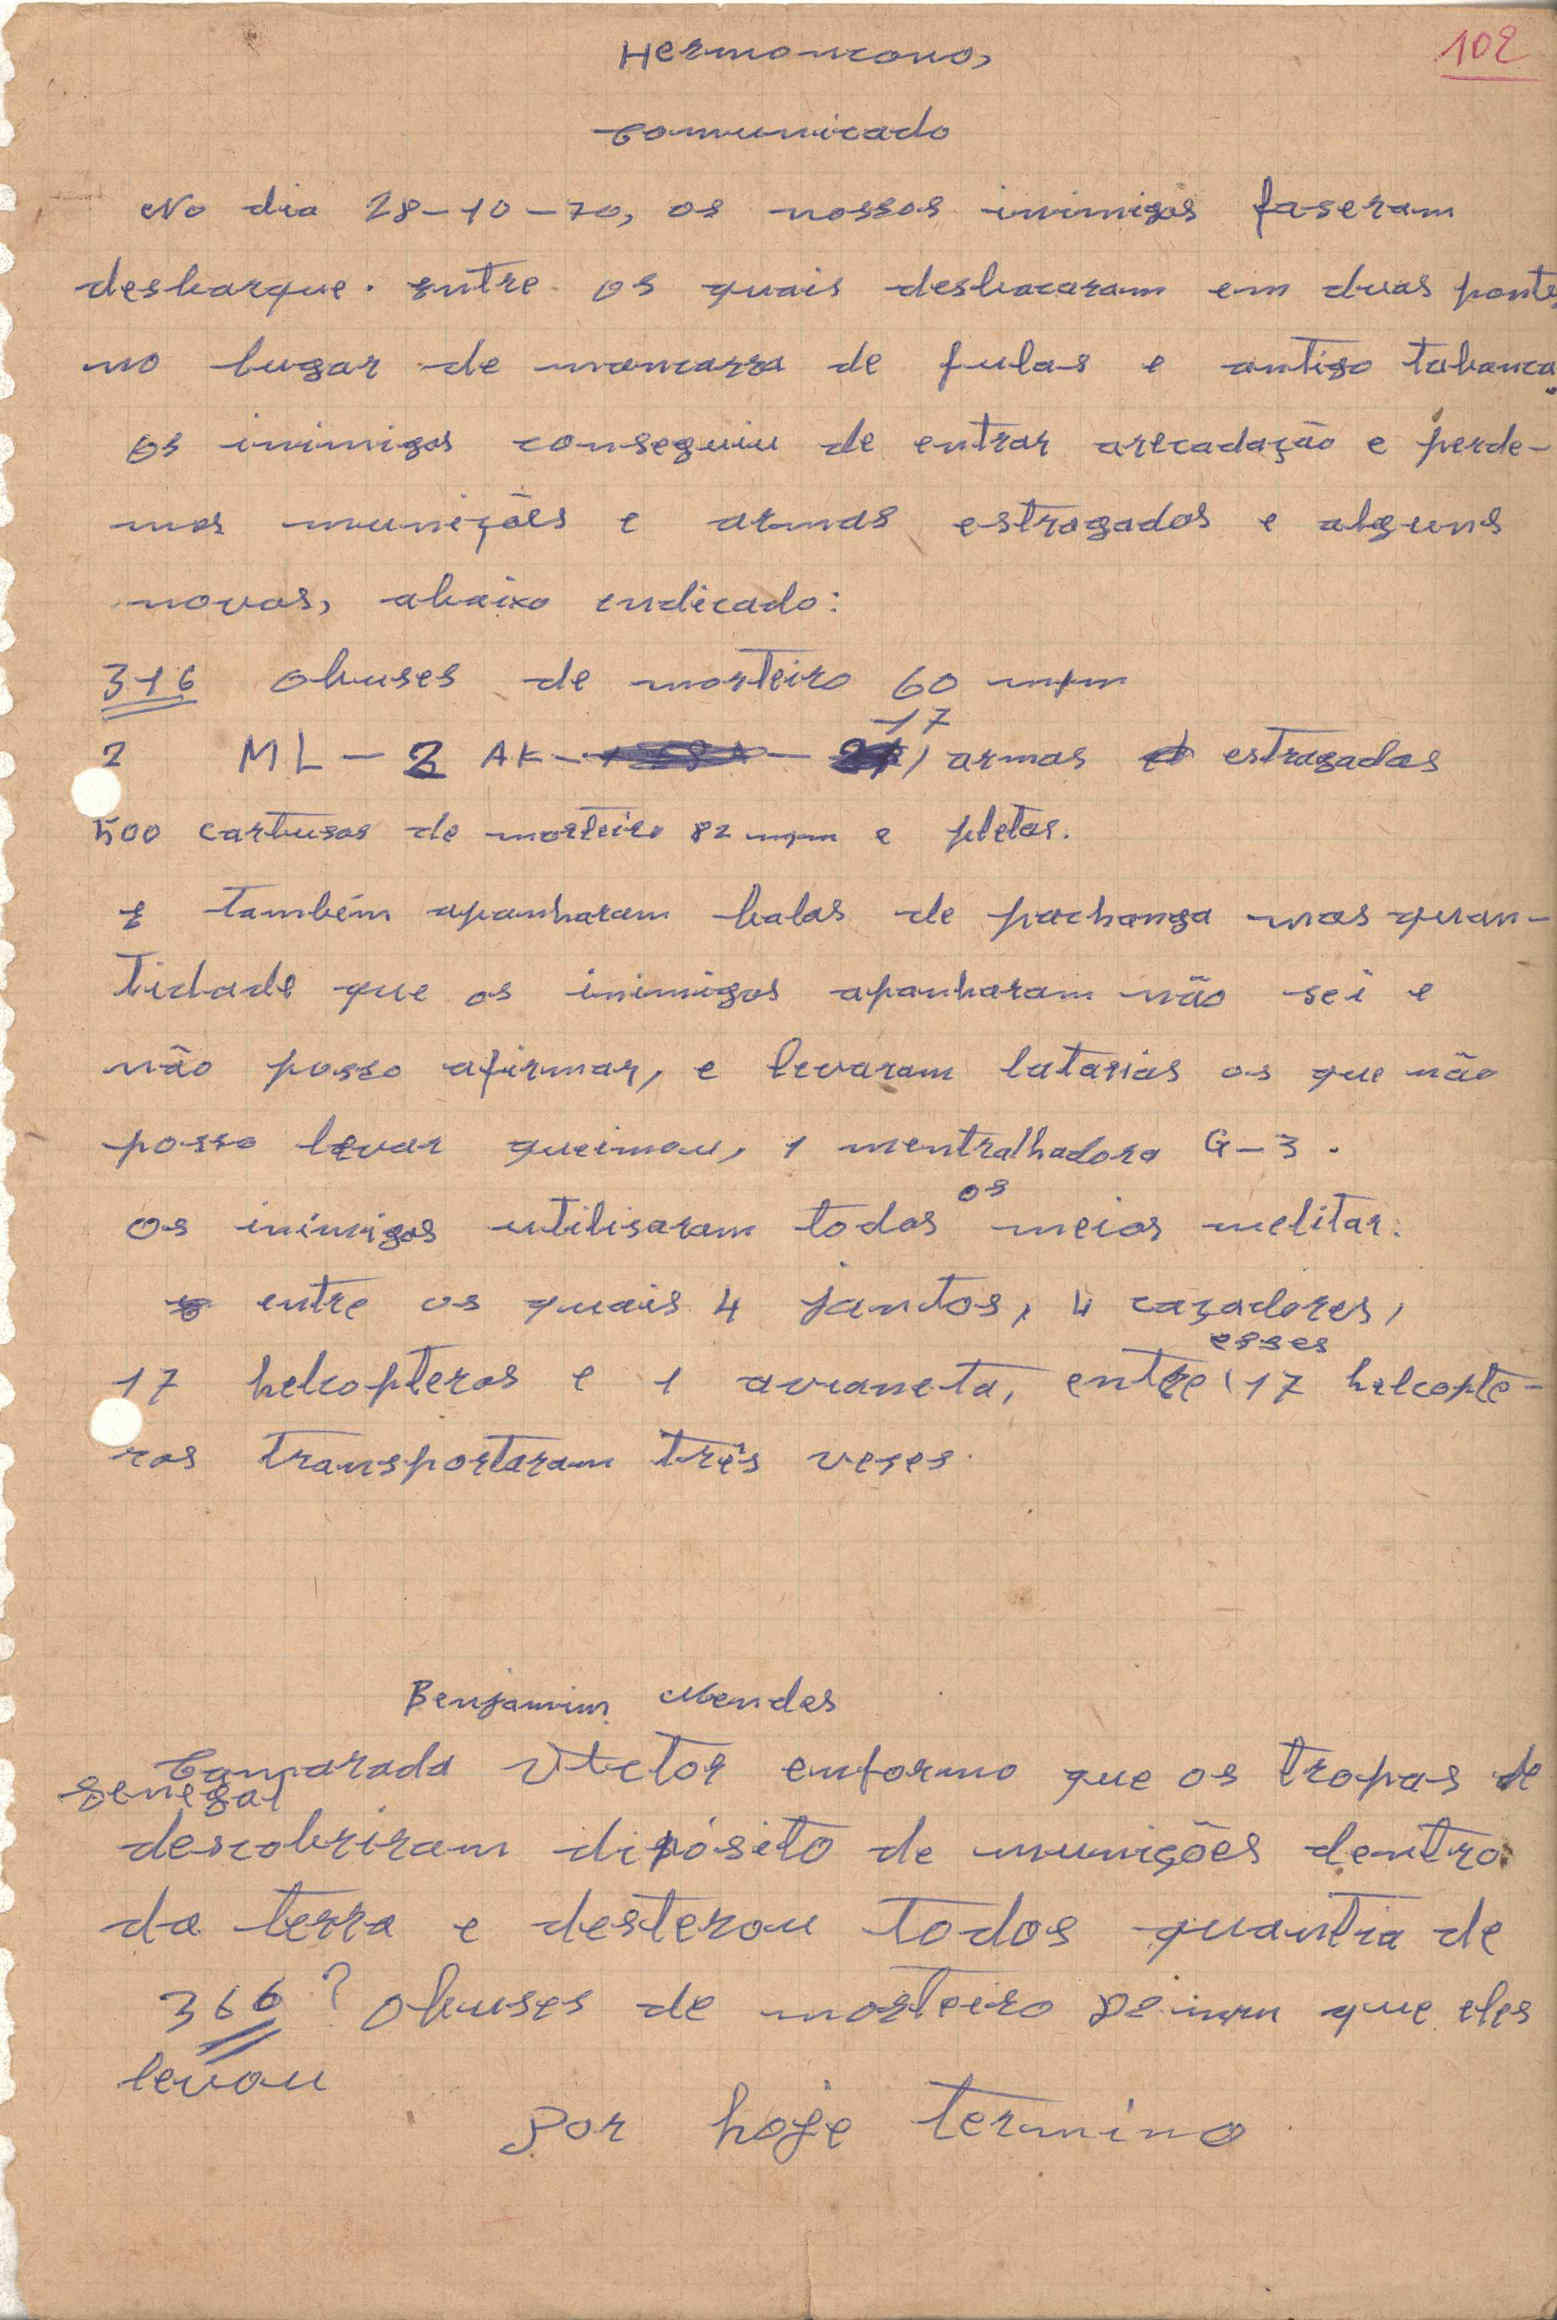 102
Hermoncono,
Comunicado
No dia 28-10-70, os nossos inimigos faseram
desbarque. entre os quais desbacaram em duas ponte
no lugar de mancarra de fulas e antigo tabanca.
Os inimigos conseguiu de entrar arecadação e perde-
mos munições e armas estragados e alguns
novos, abaixo endicado:
316 Obuses de morteiro 60 m/m
17
2 ML - 2 AK - armas estragadas
500 cartusos de morteiro 82 m/m e pletas.
E também apanharam balas de pachanga mas quan-
tidade que os inimigos apanharam não sei e
não posso afirmar, e levaram latarias os que não
posso levar queimou, 1 mentralhadora G-3.
os
Os inimigos utilisaram todos meios melitar:
entre os quais 4 jantos, 4 caçadores,
esses
17 helcopteros e 1 avraneta, entre 17 helcopte-
ros transportaram três veses.
Benjamim Mendes
Camarada Vtctor enformo que os tropas de
Senegal
descobriram dipósito de munições dentro
da terra e desterou todos quantia de
366? Obuses de morteiro 82 m/m que eles
levou
Por hoje termino